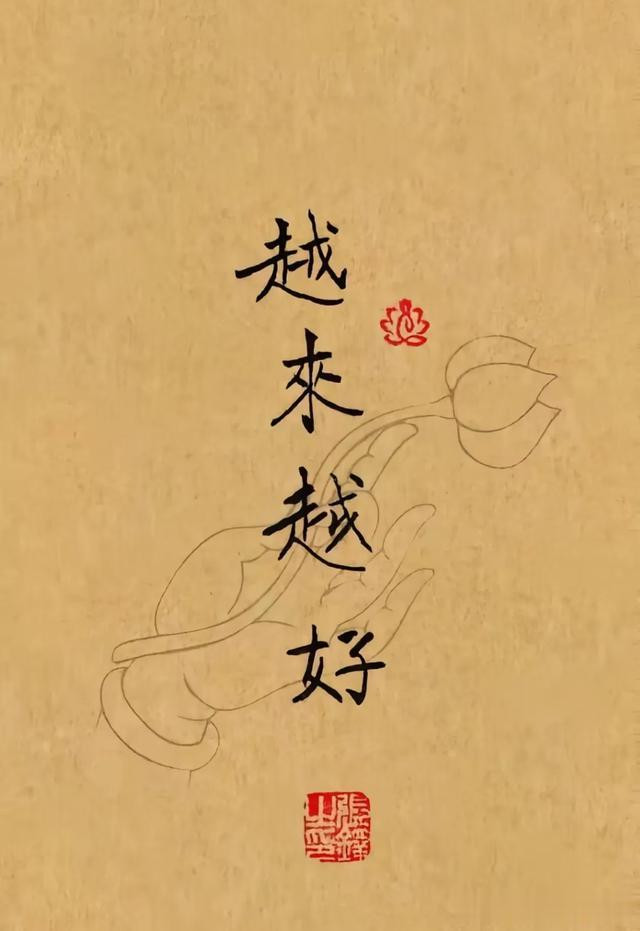 越來越好